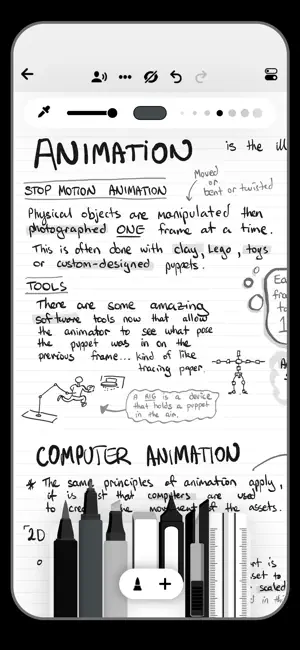 ANIMATION
is the ill
Moved
or
bent or twisted
STOP MOTION ANIMATION
Physical objects are manipulated then
photographed ONE frame at a time.
This is often done with clay, Lego, toys
or custom-designed puppets.
TOOLS
There are some amazing
software tools now that allow
the animator to see what pose
the puppet was in on the
previous frame... kind of like
tracing paper.
Ea
fra
to
1
A RIG is a device
that holds a puppet
in the air.
COMPUTER ANIMATION
* The same principles of animation apply,
it is just that computers are used
to crea the movement of the assets.
2D
rt is
set to
scaled
in th